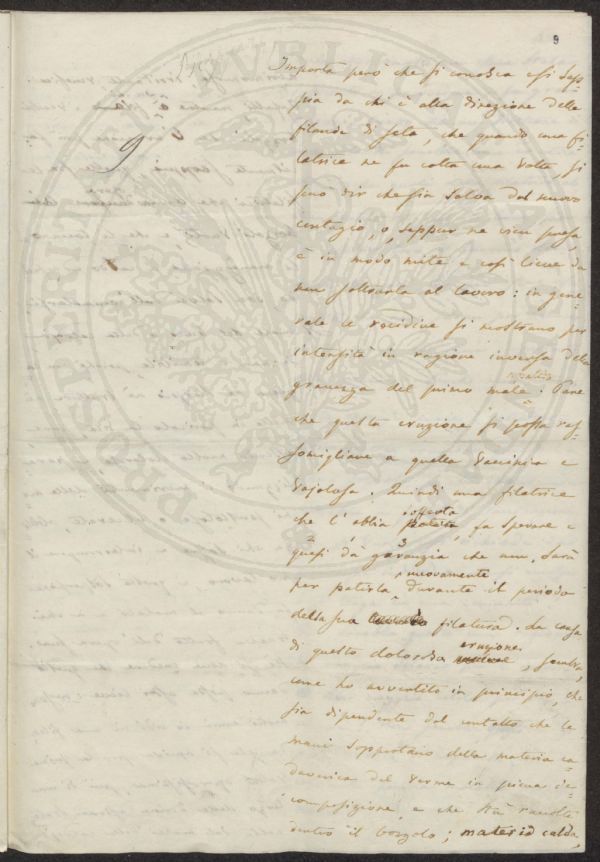 9
9
Importa però che si conosca e si sap-
pia da chi è alla direzione delle
filande di seta, che quando una fi-
latrice ne fu colta una volta, si
può dir che sia salva dal nuovo
contagio, o, seppur ne vien presa,
è in modo mite e così lieve da
non sottrarla al lavoro: in gene-
rale le recidive si mostrano per
intensità in ragione inversa della
malattia
gravezza del primo male. Pare
che questa eruzione si possa ras-
somigliare a quella vaccinica e
vajolosa. Quindi una filatrice
sofferta
che l'abbia patita, fa sperare e
2 3
quasi dà garanzia che non sarà
nuovamente
per patirla durante il periodo
della sua filatura. La causa
eruzione
di questa dolorosa, sembra,
come ho avvertito in principio, che
sia dipendente dal contatto che le
mani sopportano della materia ca-
daverica del verme in piena de-
composizione, e che sta raccolta
entro il bozzolo; materia calda,
PROSPERITATI PUBLICAE